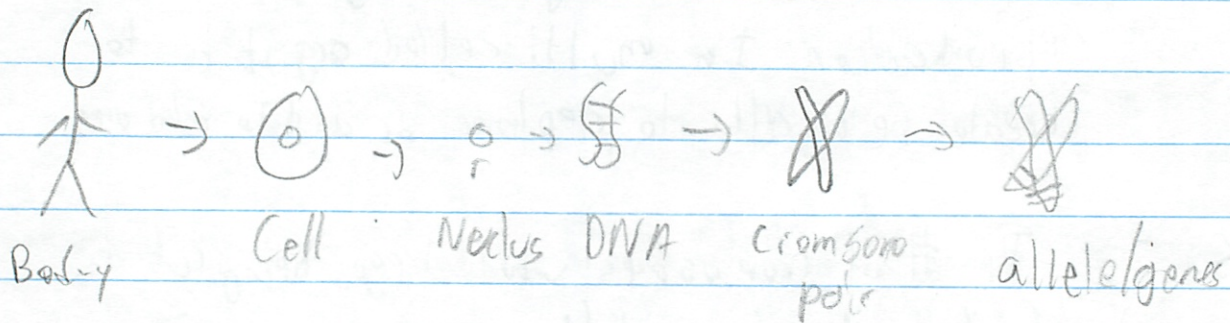 Body
Cell
Neclus
DNA
Crombono
pair
allele/genes